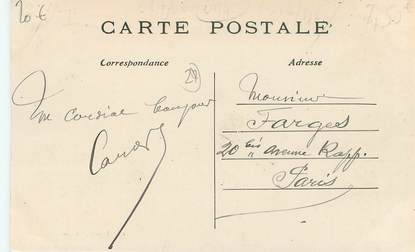 20 €
7,50
CARTE POSTALE
Correspondance
Adresse
24
Un cordial bonjour
Monsieur
Farges
20 bis avenue Rapp.
Paris